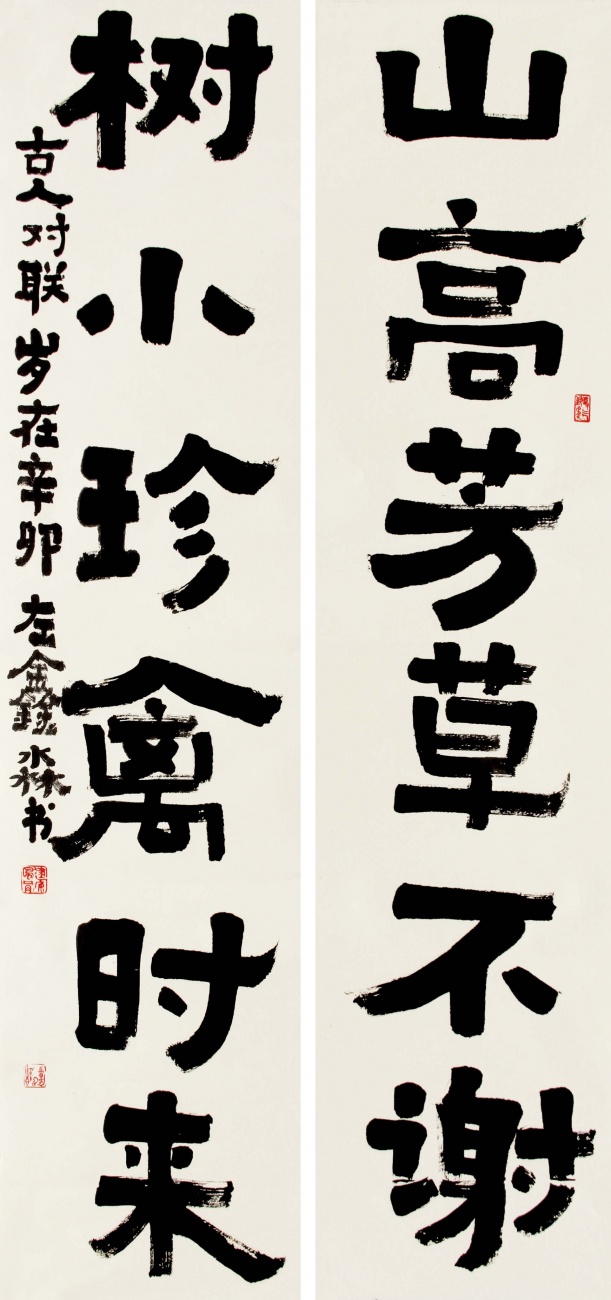 山高芳草不谢
树小珍禽时来
古人对联岁在辛卯左金鎽淼书